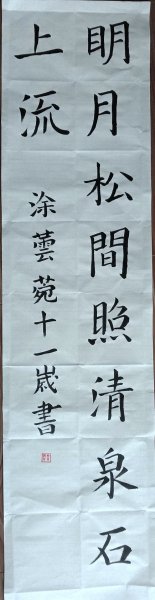 明月松間照清泉石
上流
涂蕓菀十一歲書